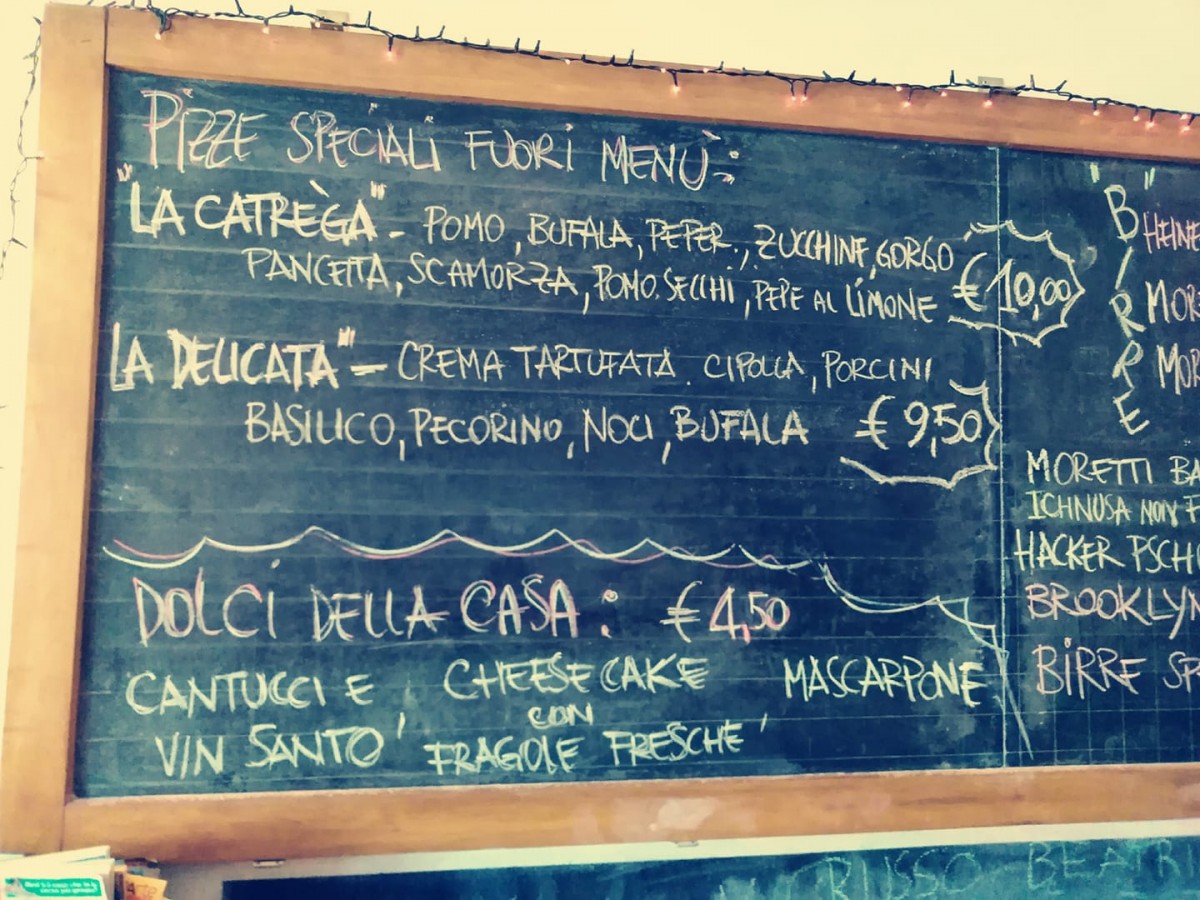 PIZZE SPECIALI FUORI MENÙ:
"LA CATRÈGA" - POMO, BUFALA, PEPER., ZUCCHINE, GORGO
PANCETTA, SCAMORZA, POMO. SECCHI, PEPE AL LIMONE € 10,00
LA DELICATA" - CREMA TARTUFATA. CIPOLLA, PORCINI
BASILICO, PECORINO, NOCI, BUFALA € 9,50
DOLCI DELLA CASA: € 4,50
CANTUCCI E
VIN SANTO,
CHEESE CAKE
CON
FRAGOLE FRESCHE,
MASCARPONE
"BIRRE"
HEINE
MOR
MOR
MORETTI BA
ICHNUSA NON F
HACKER PSCH
BROOKLYN
BIRRE SP
RUSSO BEATRI